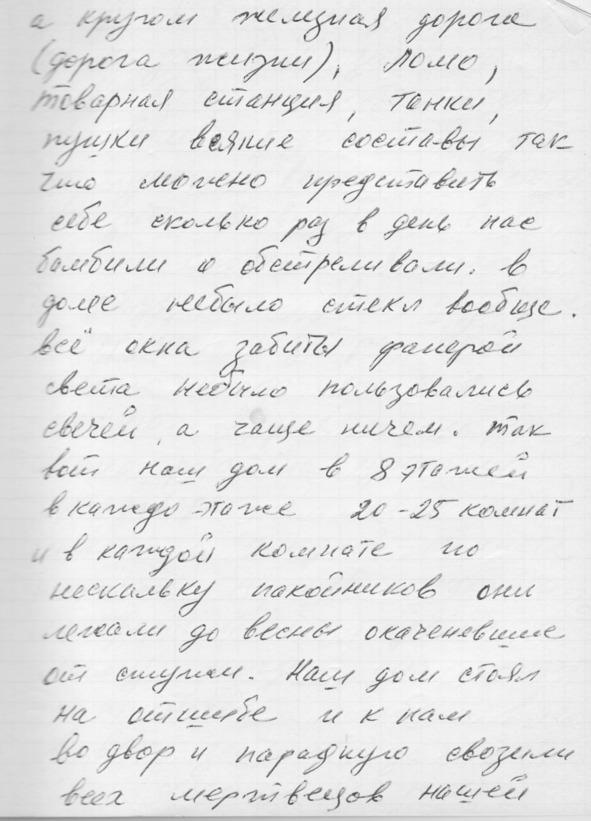 а кругом железная дорога
(дорога жизни), Ломо,
товарная станция, танки,
пушки всякие составы так
что можно представить
себе сколько раз в день нас
бамбили и обстреливали. в
доме небыло стекл вообще.
всё окна забиты фанерой
света небыло пользовались
свечей, а чаще ничем. так
вот наш дом в 8 этажей
в каждо этаже 20-25 комнат
и в каждой комнате по
нескальку пакойников они
лежали до весны окаченевшие
от стужи. Наш дом стоял
на отшибе и к нам
во двор и парадную свозили
всех мертвецов нашей